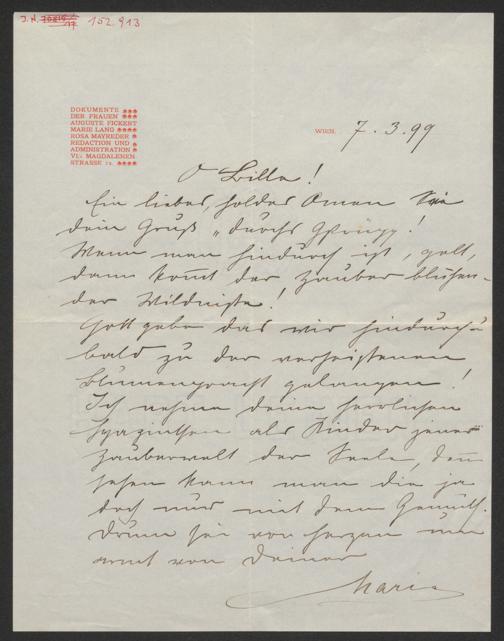 J.N. 152.913
DOKUMENTE
DER FRAUEN
AUGUSTE FICKERT
MARIE LANG
ROSA MAYREDER
REDACTION UND
ADMINISTRATION
VI/1 MAGDALENEN
STRASSE 12.
WIEN, 7.3.99
O Bille!
Ein liebes, holdes Omen sei
dein Gruß „durchs Gestrüpp!
Wenn man hindurch ist, gelt,
dann komt der Zauber blühen-
der Wildniße!
Gott gebe das wir hindurch u
bald zu der verheißenen
Blumenpracht gelangen!
Ich nehme deine herrlichen
Hyazinthen als Kinder jener
Zauberwelt der Seele, denn
sehen kann man die ja
doch nur mit dem Gemüth.
Drum sei von Herzen um
armt von Deiner
Marie